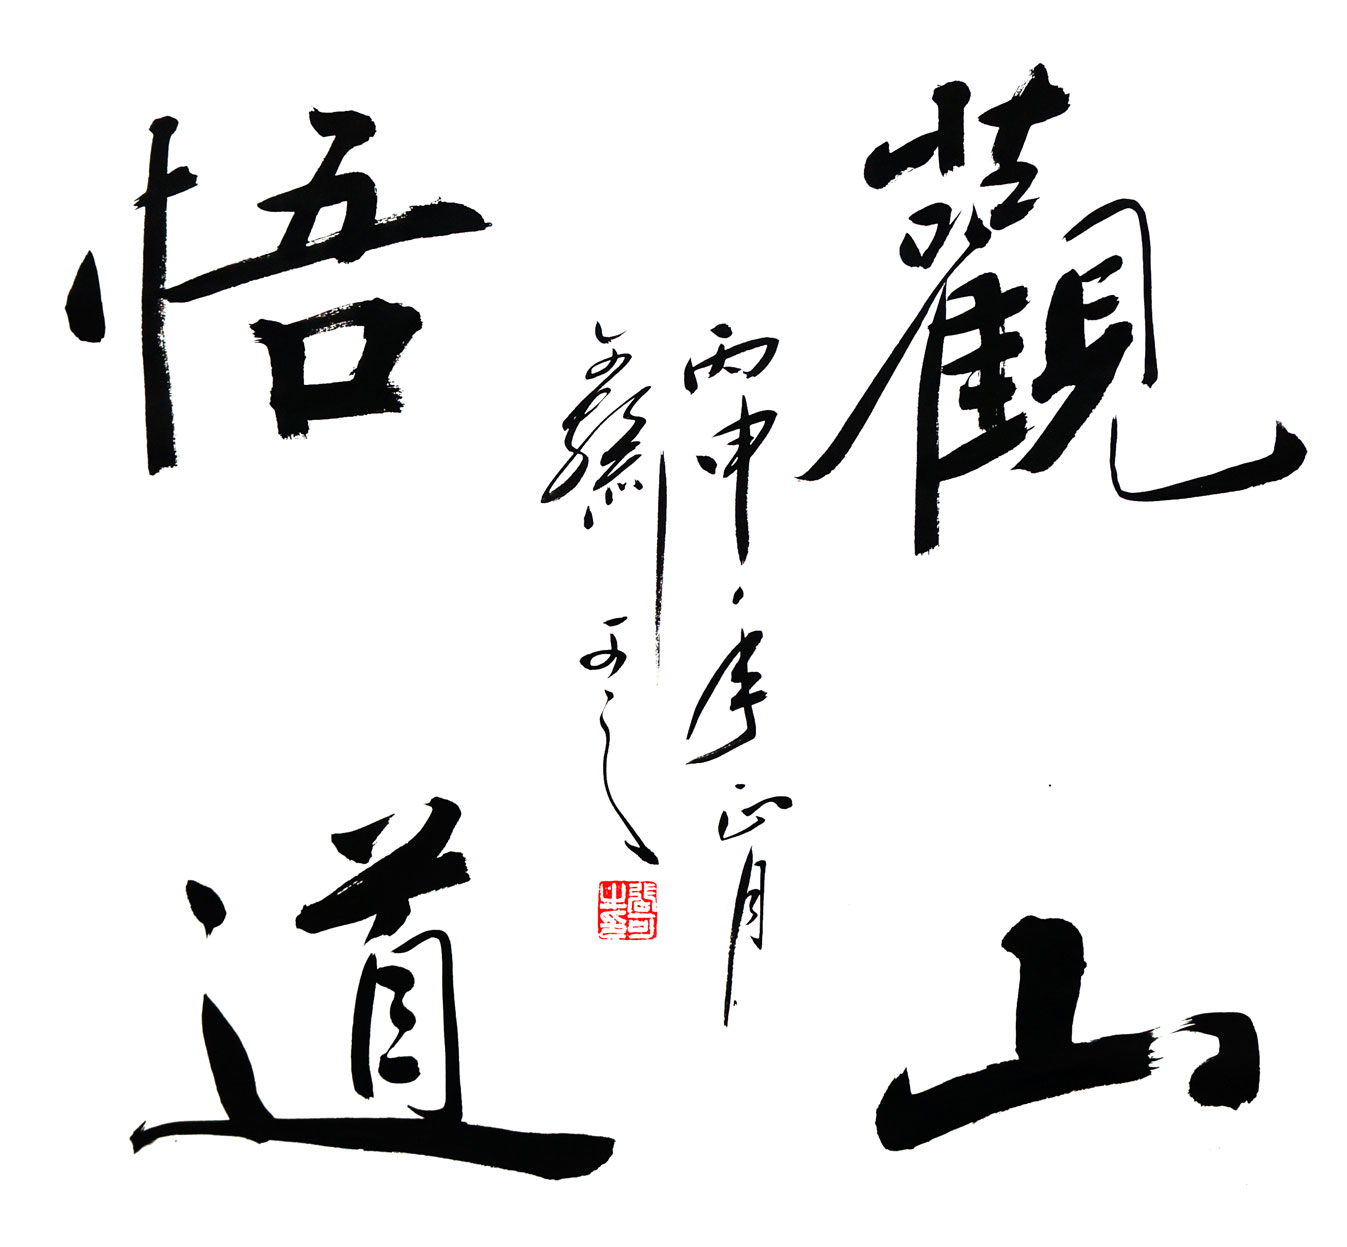 觀山
悟道
丙申年正月
可之